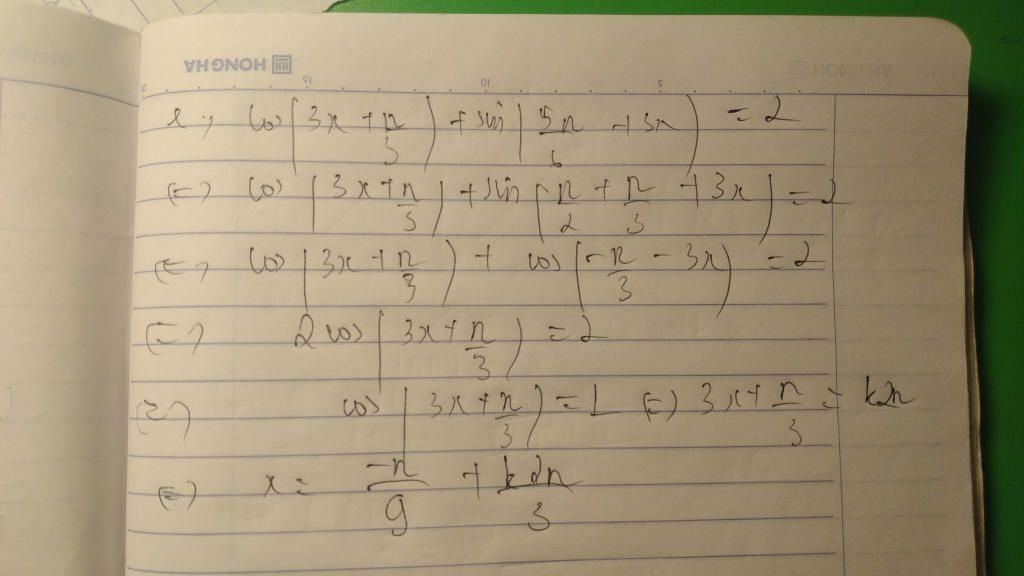 HONG HA
15 10 5
2, cos(3x + π/3) + sin(5π/6 + 3x) = 2
(=) cos(3x + π/3) + sin(π/2 + π/3 + 3x) = 2
(=) cos(3x + π/3) + cos(-π/3 - 3x) = 2
(=) 2cos(3x + π/3) = 2
(=) cos(3x + π/3) = 1 (=) 3x + π/3 = k2π
(=) x = -π/9 + k2π/3